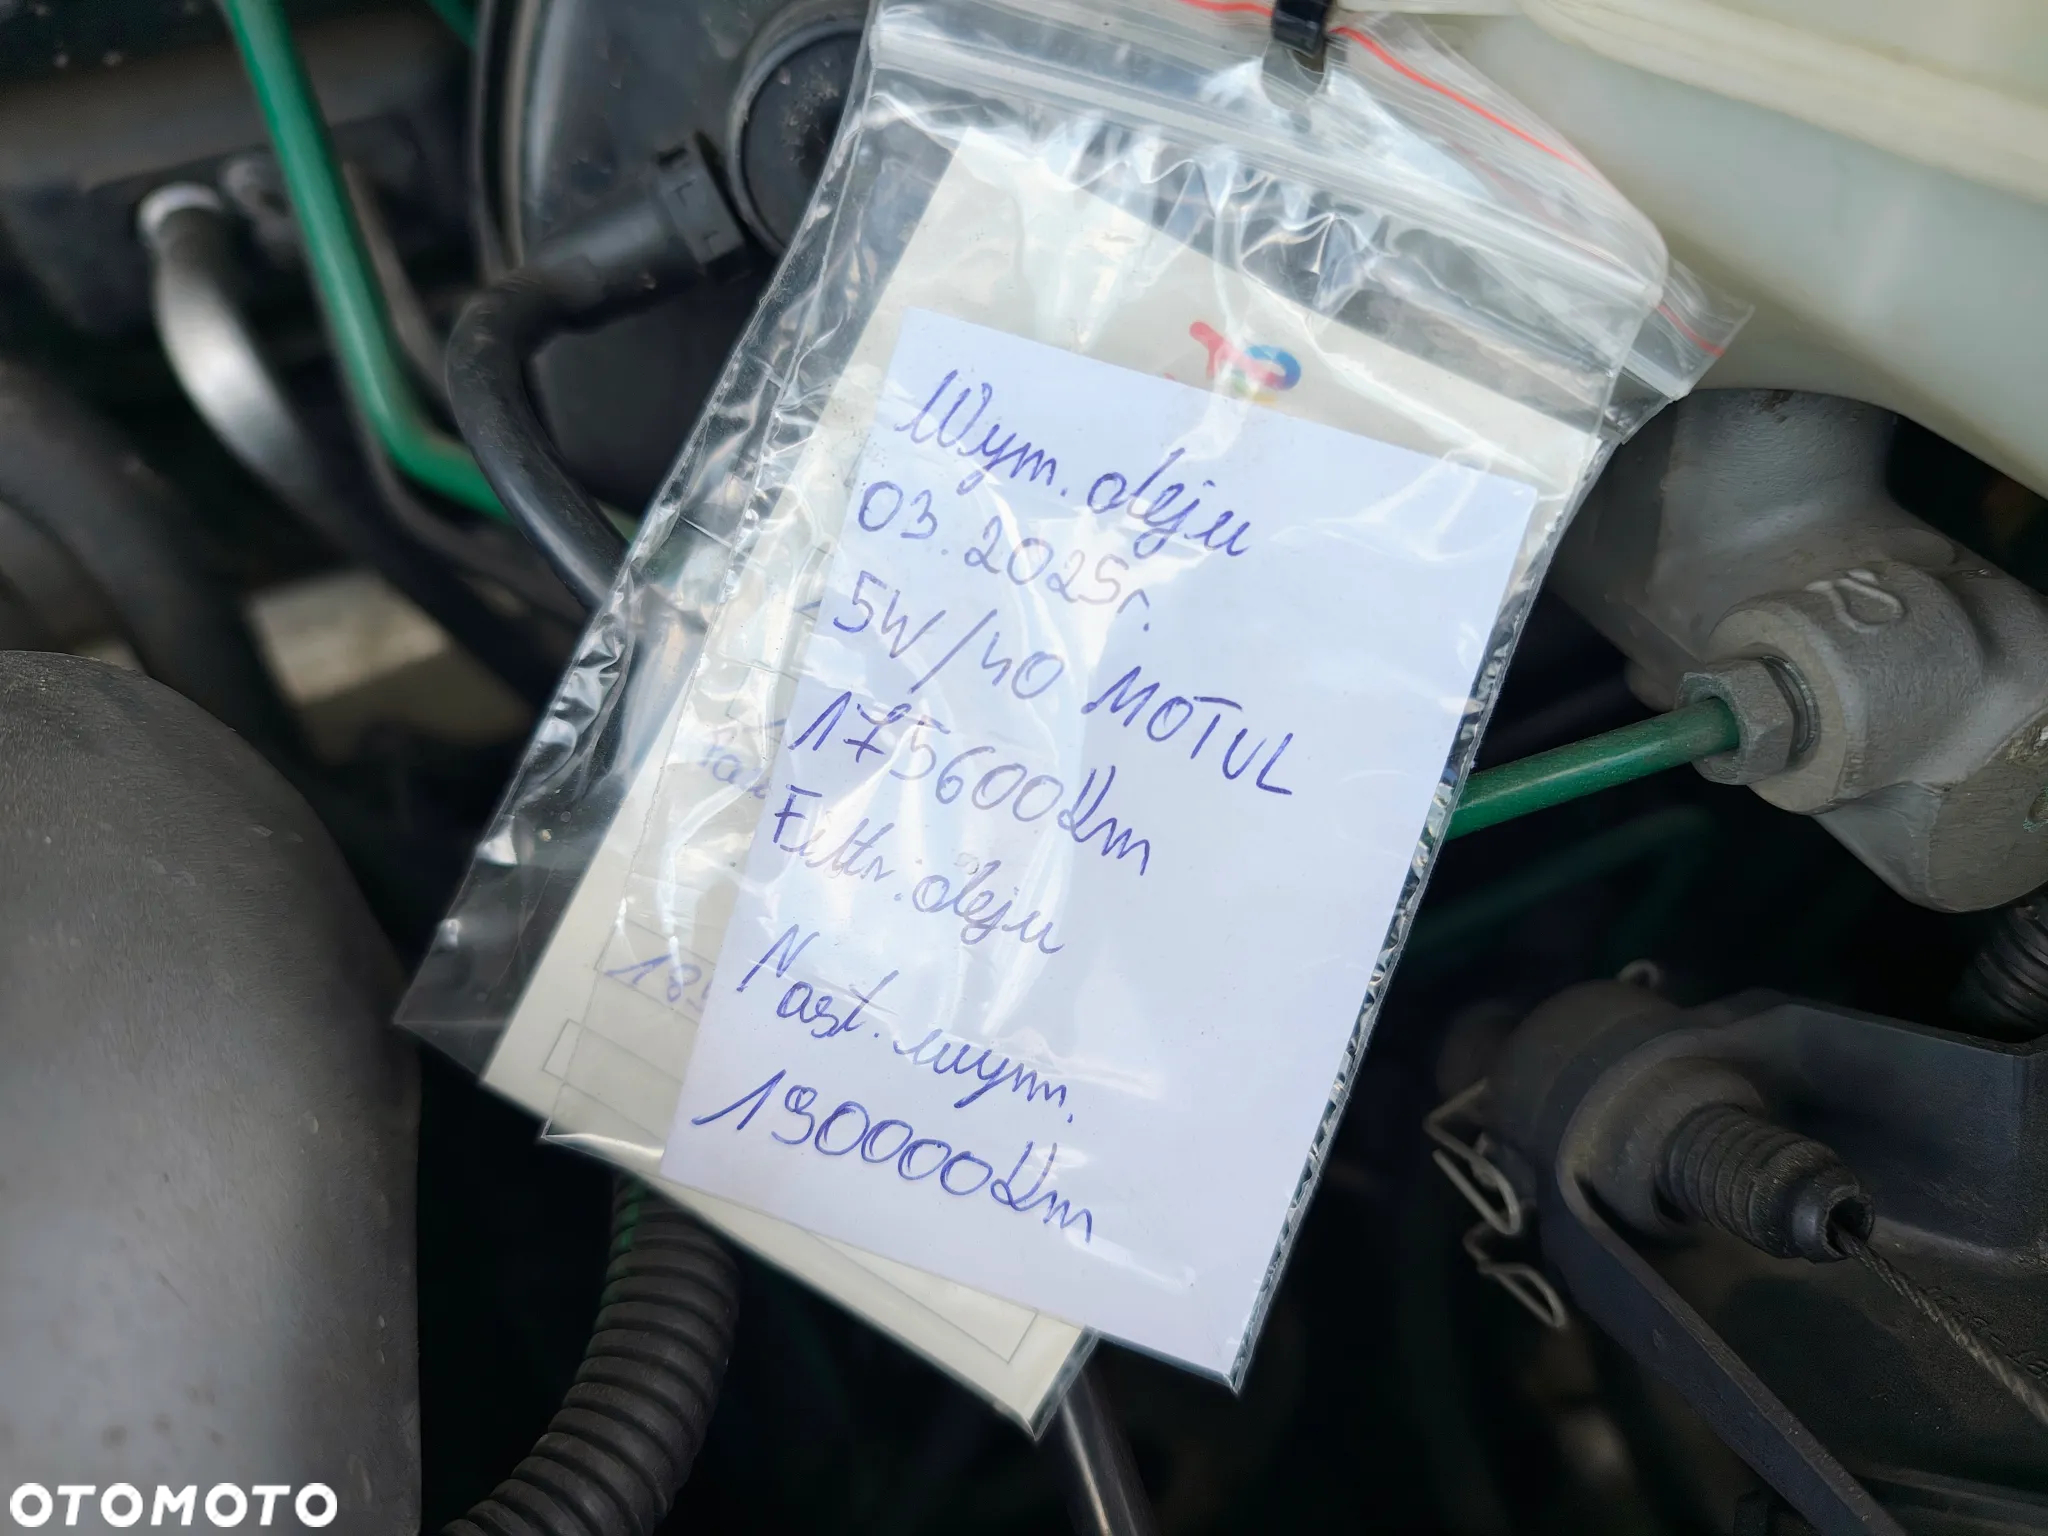 Wym. oleju
03.2025r.
5W/40 MOTUL
175600Km
Filtr. oleju
Nast. wym.
190000Km
OTOMOTO